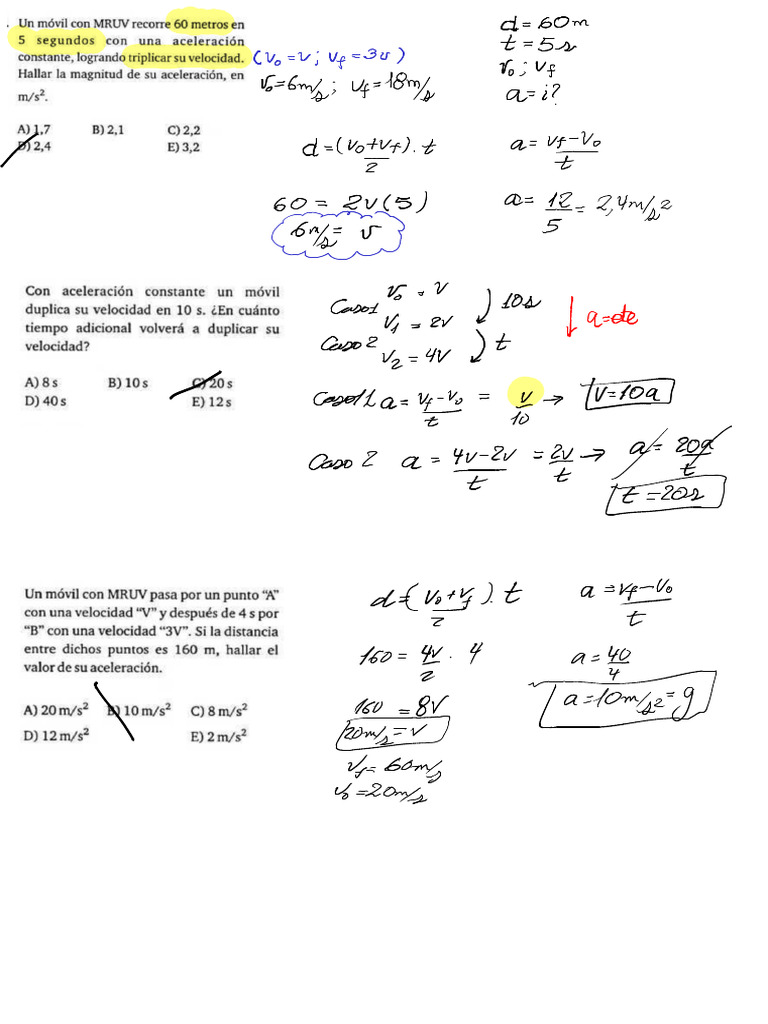 . Un móvil con MRUV recorre 60 metros en
5 segundos con una aceleración
constante, logrando triplicar su velocidad.
Hallar la magnitud de su aceleración, en
m/s².
A) 1,7 B) 2,1 C) 2,2
D) 2,4 E) 3,2
(v₀=v ; v_f=3v)
v₀=6m/s ; v_f=18m/s
d=60m
t=5s
v₀ ; v_f
a=¿?
d=(v₀+v_f).t
2
a= v_f-v₀
t
60=2v(5)
6m/s=v
a= 12 = 2,4m/s²
5
Con aceleración constante un móvil
duplica su velocidad en 10 s. ¿En cuánto
tiempo adicional volverá a duplicar su
velocidad?
A) 8 s B) 10 s C) 20 s
D) 40 s E) 12 s
v₀ = v
Caso 1
v₁ = 2v
Caso 2
v₂ = 4v
10s
t
a=cte
Caso 1 a= v_f-v₀ = v → v=10a
t 10
Caso 2 a = 4v-2v = 2v → a = 20a
t t t
t=20s
Un móvil con MRUV pasa por un punto “A”
con una velocidad “V” y después de 4 s por
“B” con una velocidad “3V”. Si la distancia
entre dichos puntos es 160 m, hallar el
valor de su aceleración.
A) 20 m/s² B) 10 m/s² C) 8 m/s²
D) 12 m/s² E) 2 m/s²
d=(v₀+v_f).t
2
160 = 4v . 4
2
160 = 8v
20m/s=v
v_f=60m/s
v₀=20m/s
a = v_f-v₀
t
a= 40
4
a=10m/s²=g